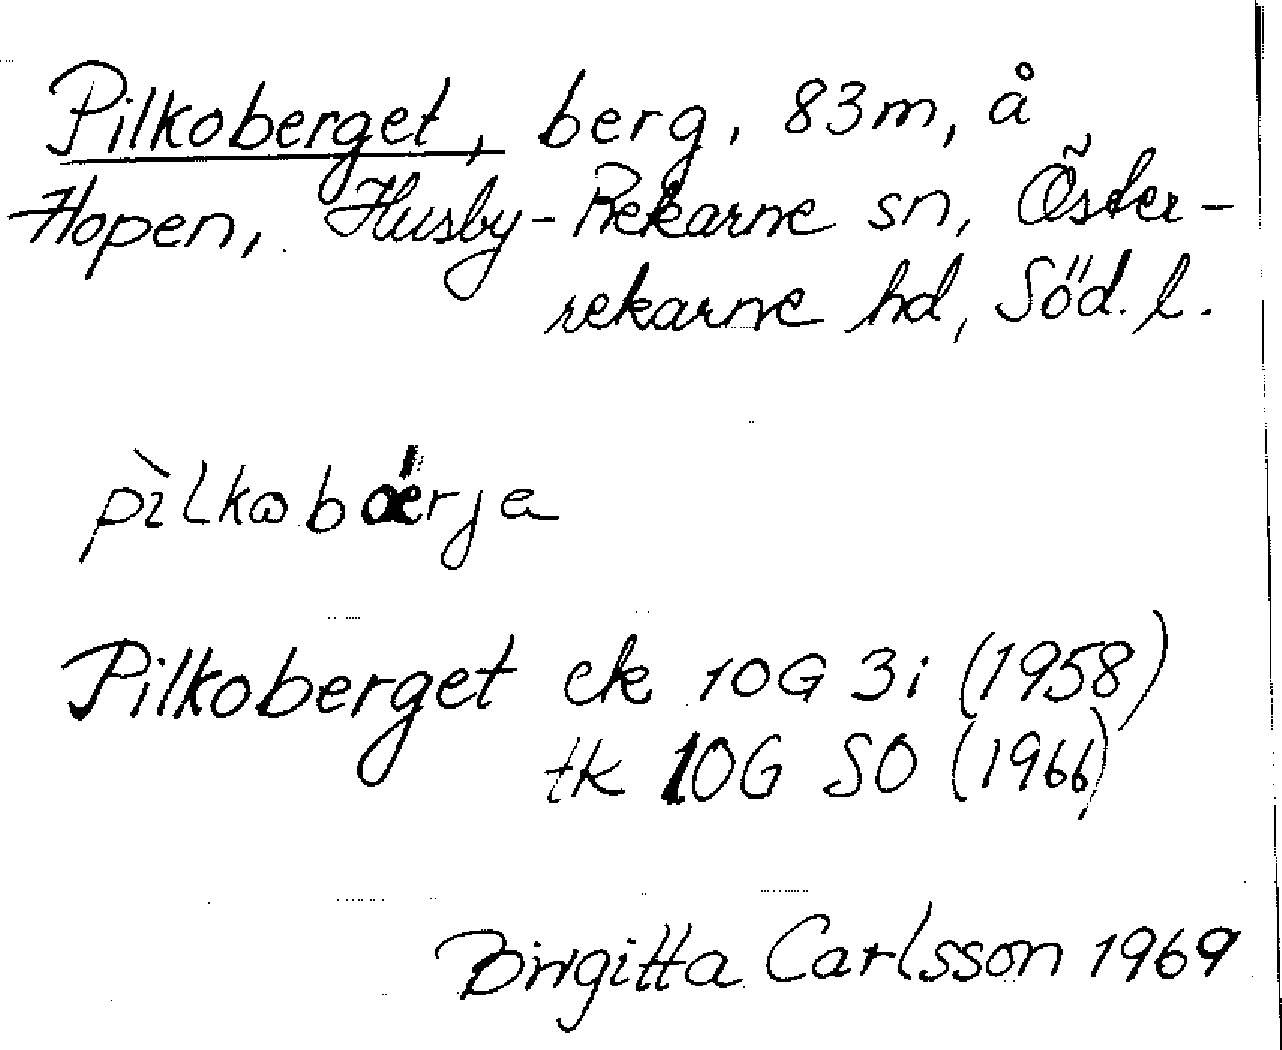 Pilkoberget, berg, 83m, å
Hopen, Husby-Rekarne sn, Öster-
rekarne hd, Söd. l.
pìlkobǽrja
Pilkoberget ek 10G 3i (1958)
tk 10G SO (1966)
Birgitta Carlsson 1969